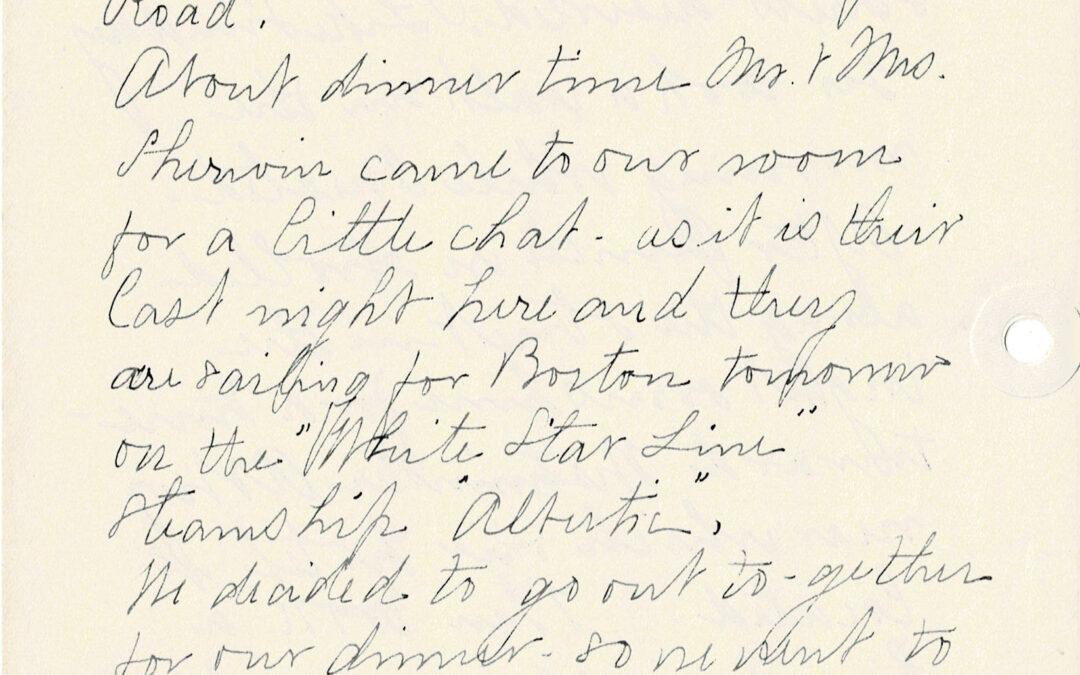 Road.
About dinner time Mr. & Mrs.
Sherwin came to our room
for a little chat - as it is their
last night here and they
are sailing for Boston tomorrow
on the "White Star Line"
Steamship "Albertic".
We decided to go out to-gether
for our dinner - so we went to